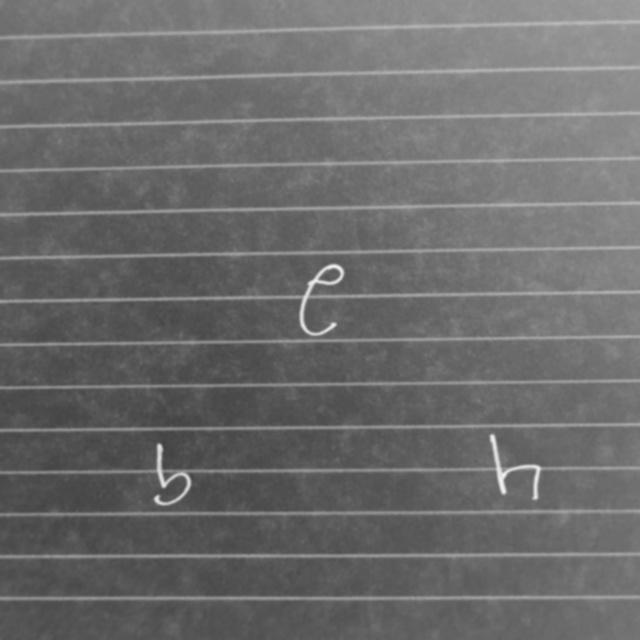 e
b h